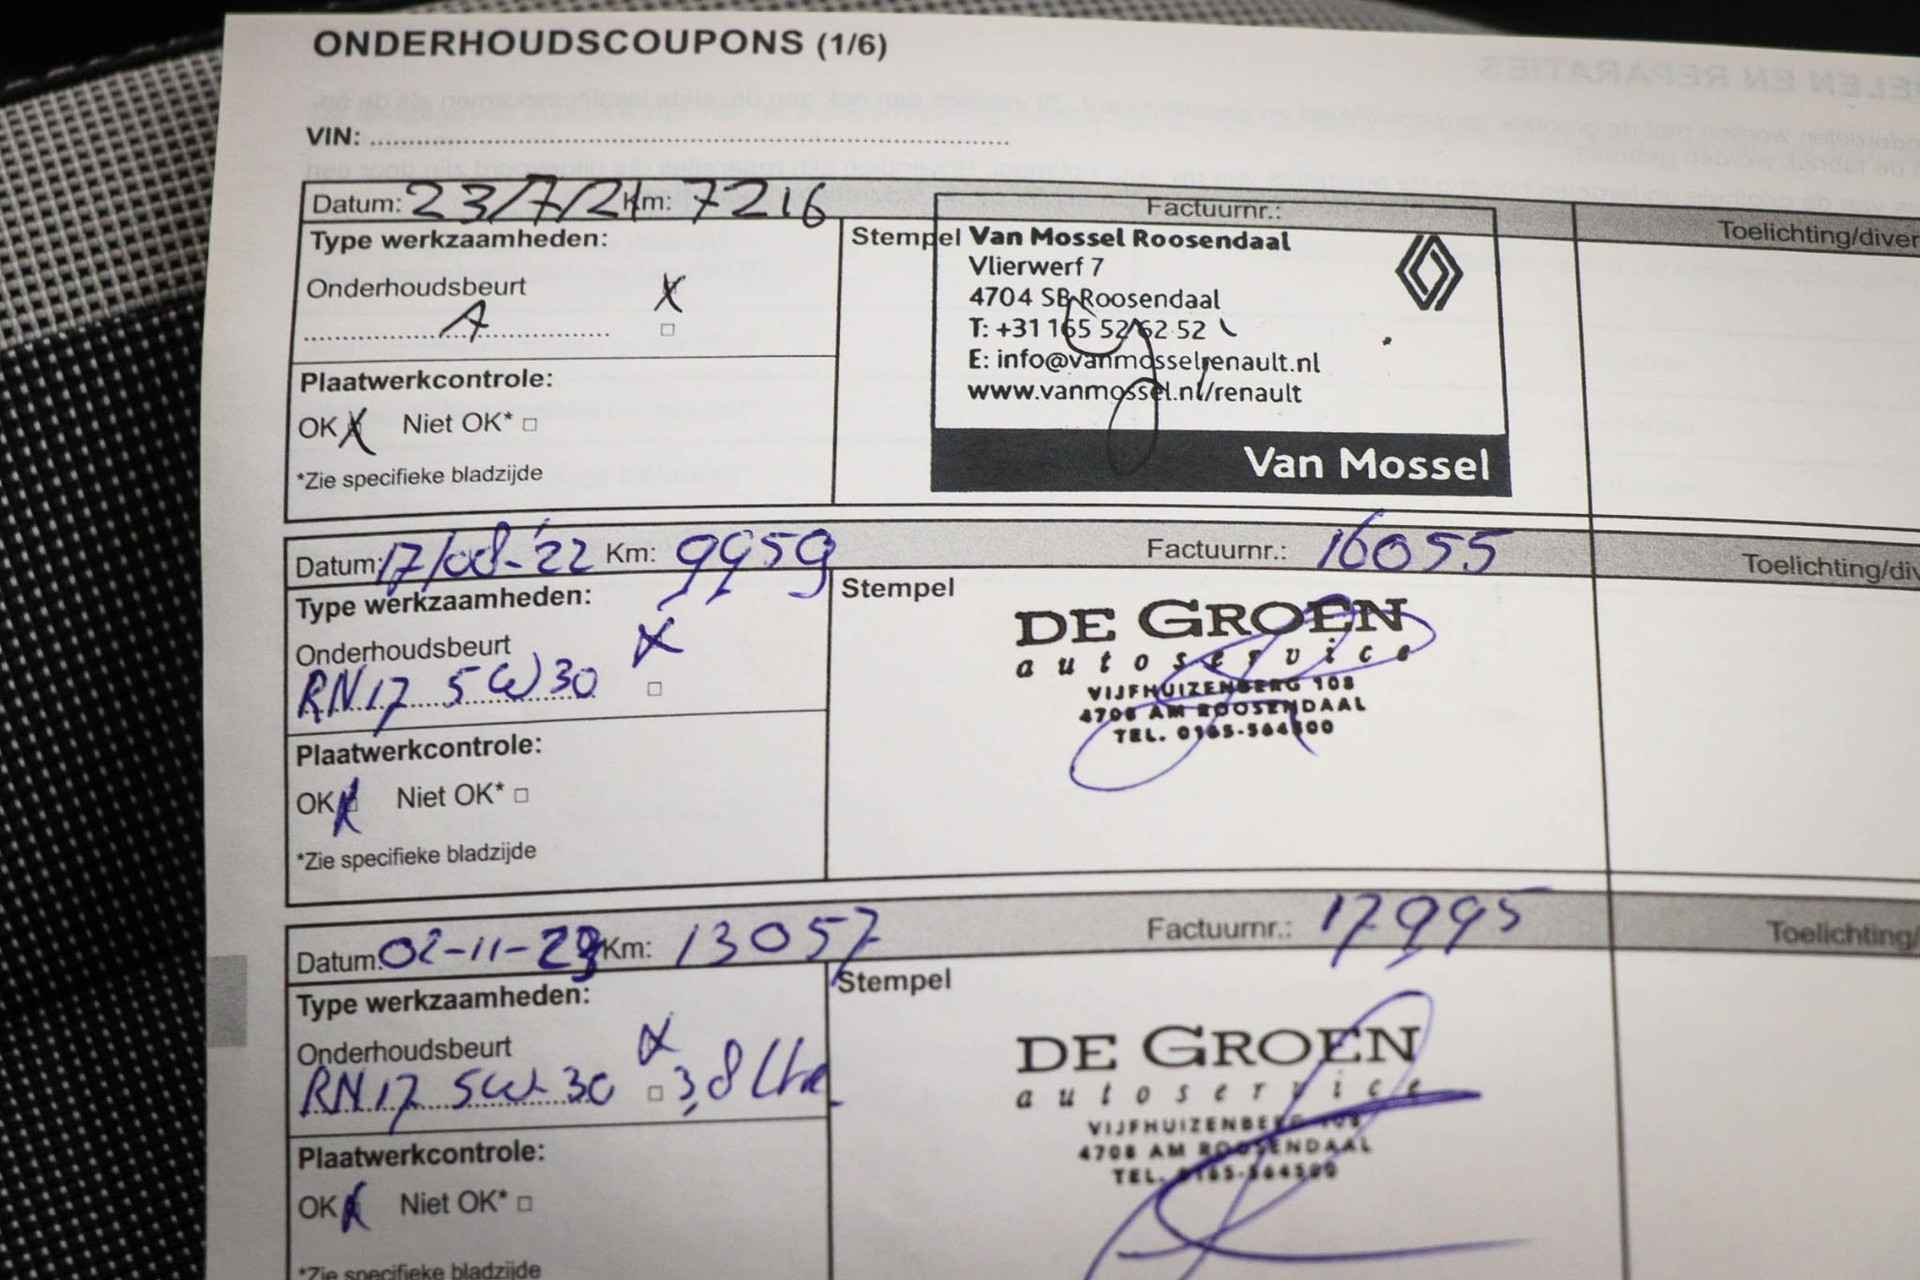 ONDERHOUDSCOUPONS (1/6)
VIN:
Datum: 23/7/21 Km: 7216 Factuurnr.: Toelichting/diver
Type werkzaamheden:
Onderhoudsbeurt
A
Plaatwerkcontrole:
OK Niet OK*
*Zie specifieke bladzijde
Stempel
Van Mossel Roosendaal
Vlierwerf 7
4704 SB Roosendaal
T: +31 165 52 62 52
E: info@vanmosselrenault.nl
www.vanmossel.nl/renault
Van Mossel
Datum: 17/08-'22 Km: 9959 Factuurnr.: 16055 Toelichting/di
Type werkzaamheden:
Onderhoudsbeurt
RN17 5W30
Plaatwerkcontrole:
OK Niet OK*
*Zie specifieke bladzijde
Stempel
DE GROEN
autoservice
VIJFHUIZENBERG 108
4708 AM ROOSENDAAL
TEL. 0165-564500
Datum: 02-11-23 Km: 13057 Factuurnr.: 17995 Toelichting/
Type werkzaamheden:
Onderhoudsbeurt
RN17 5W-30 3,8
Plaatwerkcontrole:
OK Niet OK*
*Zie specifieke bladzijde
Stempel
DE GROEN
autoservice
VIJFHUIZENBERG 108
4708 AM ROOSENDAAL
TEL. 0165-564500